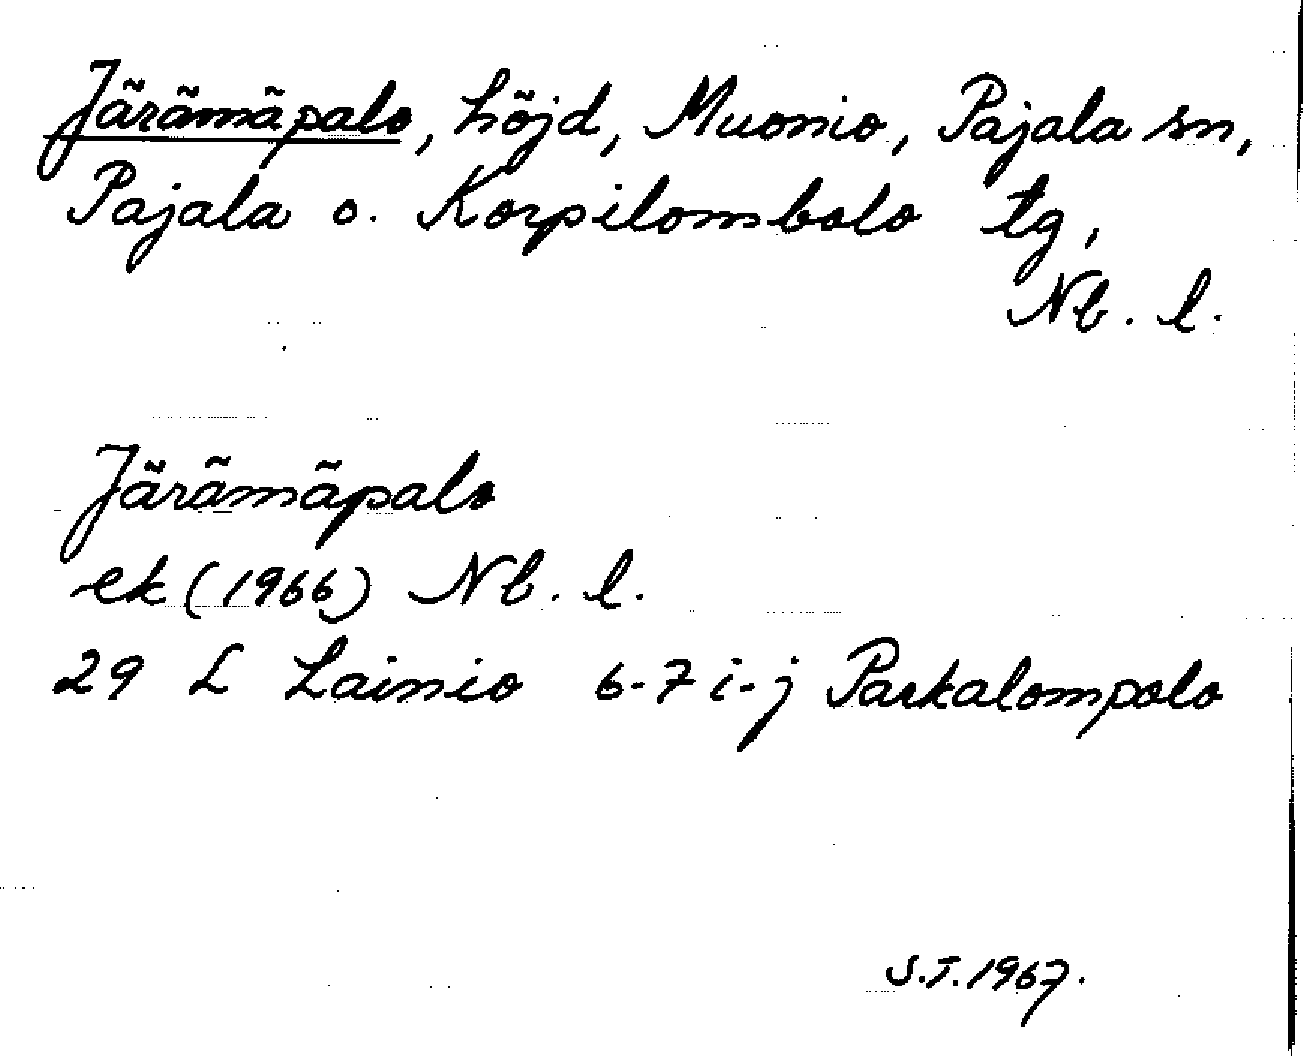 Järämäpalo, höjd, Muonio, Pajala sn,
Pajala o. Korpilombolo tg,
Nb. l.
Järämäpalo
ek (1966) Nb. l.
29 L Lainio 6-7 i-j Parkalompolo
S.T. 1967.